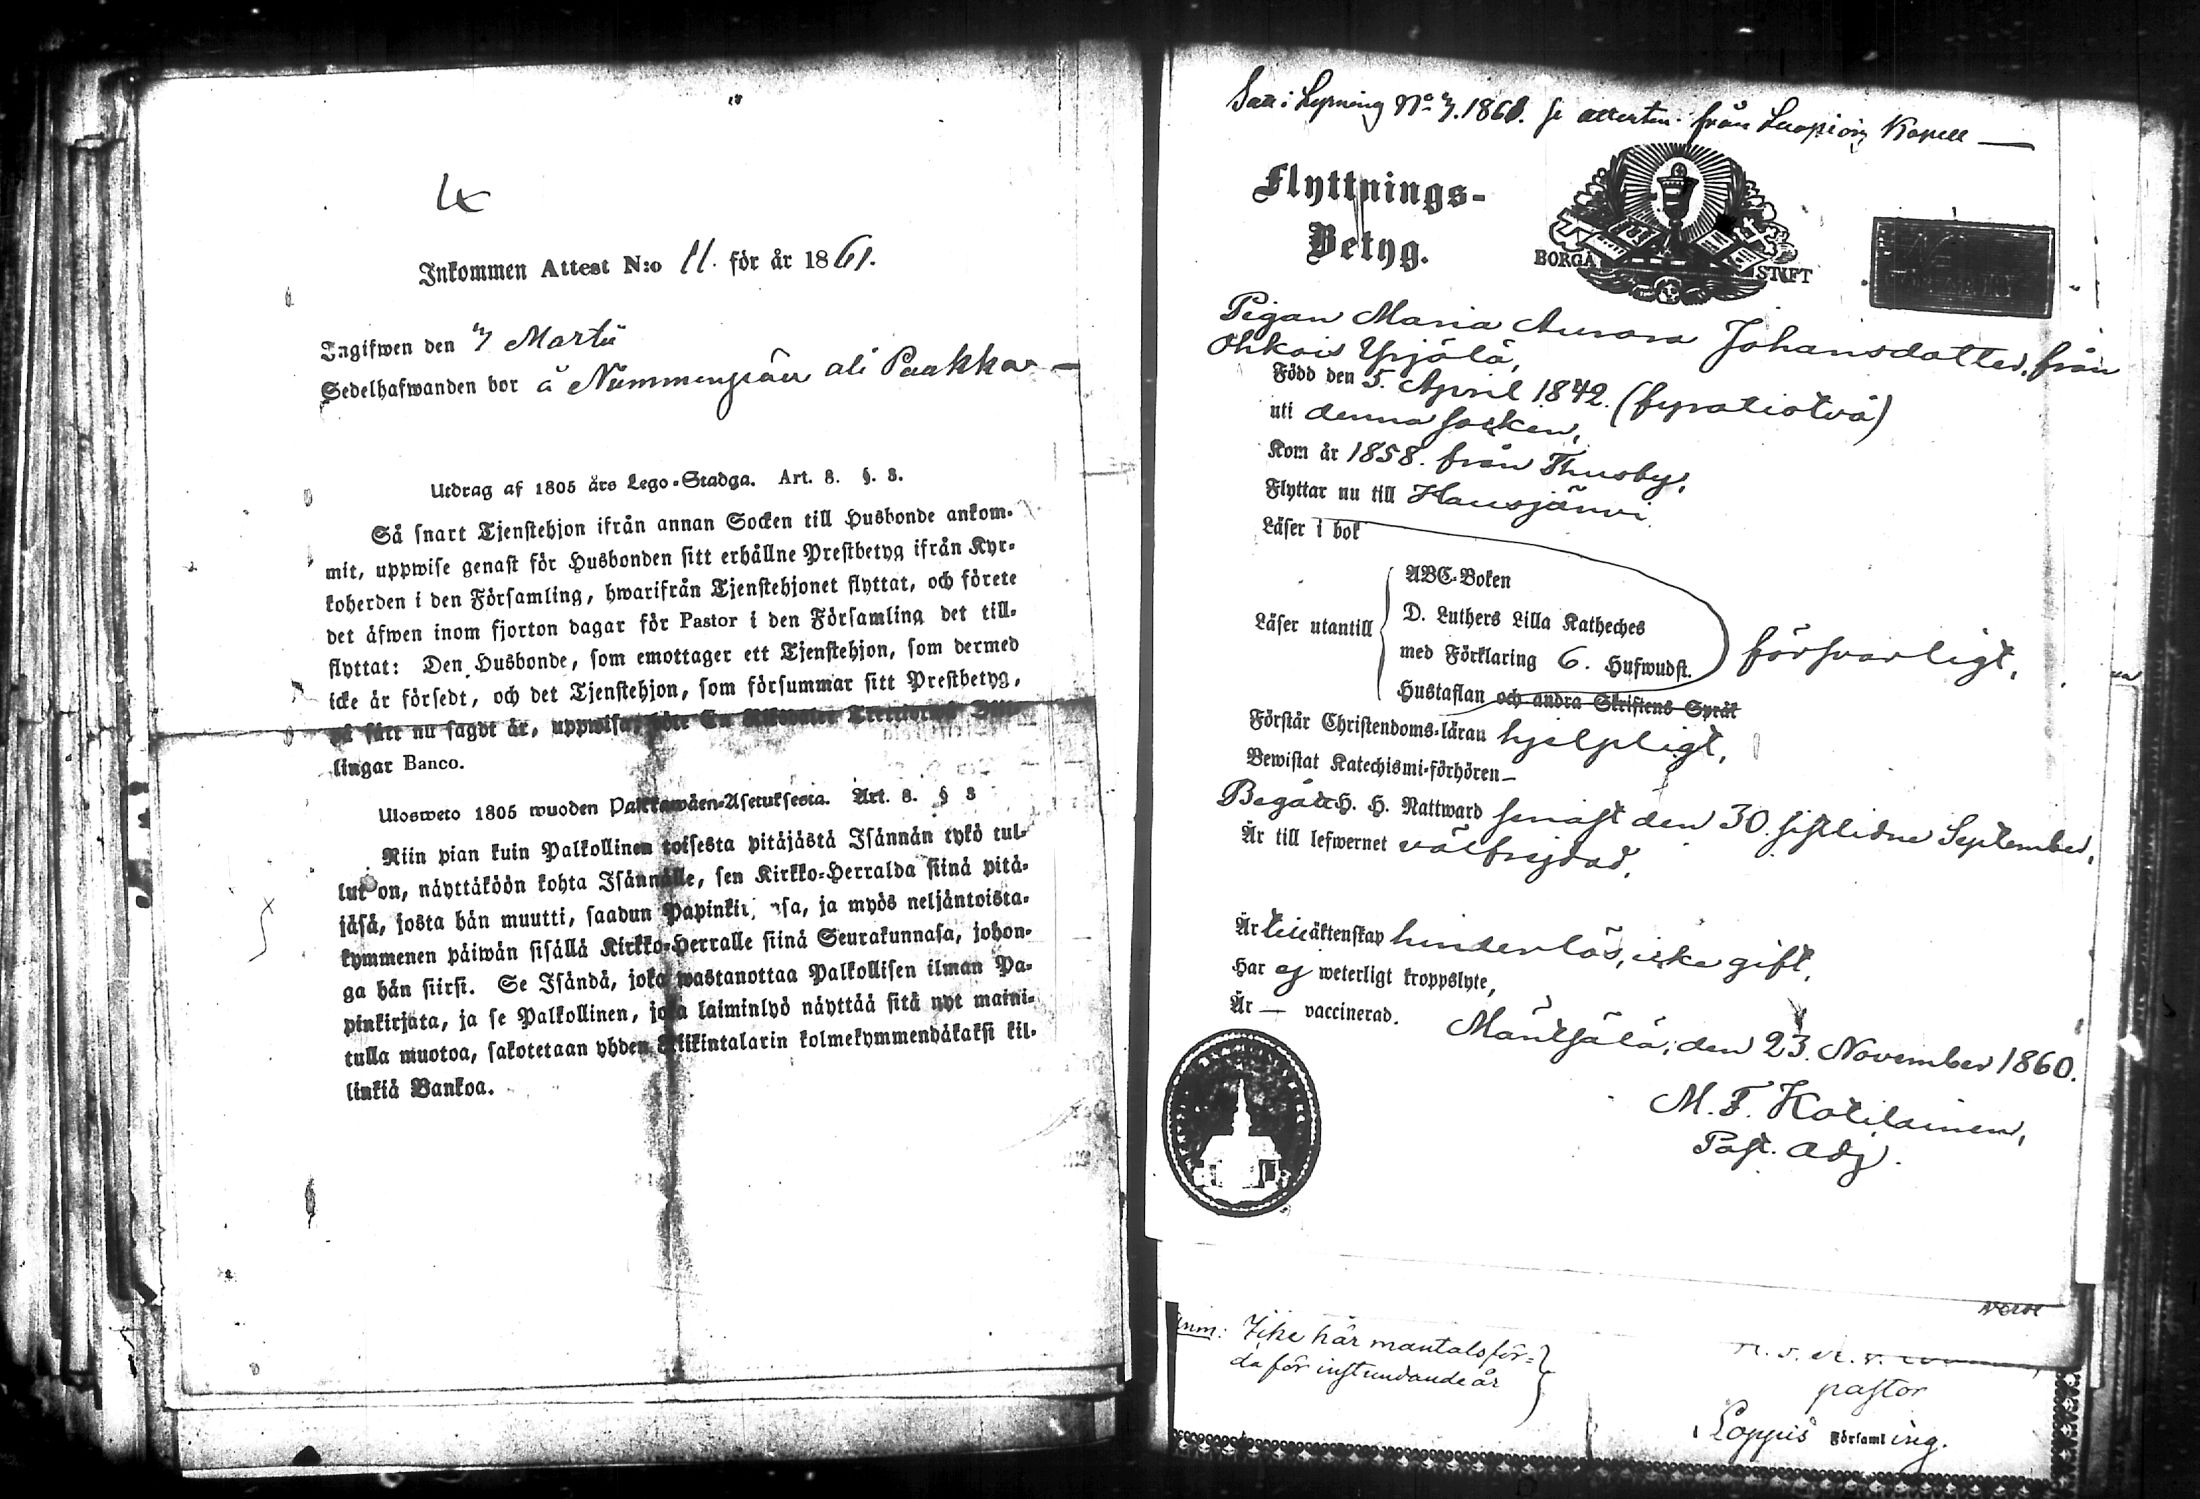 Inkommen Attest N:o 11. för år 1861.
Ingifwen den 4/7 Martii
Sedelhafwanden bor å Nummenpää ali Paakka
Utdrag af 1805 års Lego-Stadga. Art. 8. §. 3.
Så snart Tjenstehjon ifrån annan Socken till Husbonde ankom-
mit, uppwise genast för Husbonden sitt erhållne Prestbetyg ifrån Kyr-
koherden i den Församling, hwarifrån Tjenstehjonet flyttat, och förete
det äfwen inom fjorton dagar för Pastor i den Församling det till-
flyttat: Den Husbonde, som emottager ett Tjenstehjon, som dermed
icke är försedt, och det Tjenstehjon, som försummar sitt Prestbetyg,
på sätt nu sagdt är, uppwisa, böte En Riksdaler Trettiotvå Skil-
lingar Banco.
Ulosweto 1805 wuoden Palkkawäen-Asetuksesta. Art. 8. § 3
Niin pian kuin Palkollinen toisesta pitäjästä Isännän tykö tul-
lut on, näyttäköön kohta Isännälle, sen Kirkko-Herralda siinä pitä-
jäsä, josta hän muutti, saadun Papinkirjansa, ja myös neljäntoista-
kymmenen päiwän sisällä Kirkko-Herralle siinä Seurakunnasa, johon-
ga hän siirsi. Se Isändä, joka wastanottaa Palkollisen ilman Pa-
pinkirjata, ja se Palkollinen, joka laiminlyö näyttää sitä nyt maini-
tulla muotoa, sakotetaan yhden Riikintalarin kolmekymmendäkaksi kil-
linkiä Bankoa.
Satt i Lysning N:o 1860. Se attesten från Luopiois Kapell
Flyttnings-
Betyg.
BORGÅ STIFT
Pigan Maria Aurora Johansdotter, från
Ohkois Yrjölä,
Född den 5. April 1842. (fyratiotvå)
uti denna socken,
Kom år 1858. från Thusby,
Flyttar nu till Hausjärvi.
Läser i bok
ABC-Boken
Läser utantill D. Luthers Lilla Katheches
med Förklaring 6. Hufwudst. försvarligt,
Hustaflan och andra Skriftens Språk
Förstår Christendoms-läran hjelpligt,
Bewistat Katechismi-förhören –
Begått H. H. Nattward senast den 30. sistlidne September,
Är till lefwernet välfrejdad,
Är till äktenskap hinderlös, icke gift,
Har ej weterligt kroppslyte,
Är — vaccinerad.
Mäntsälä, den 23. November 1860.
M. F. Kotilainen,
Past. Adj.
Anm: Icke här mantalsför-
da för instundande år
pastor
Loppis Församling.